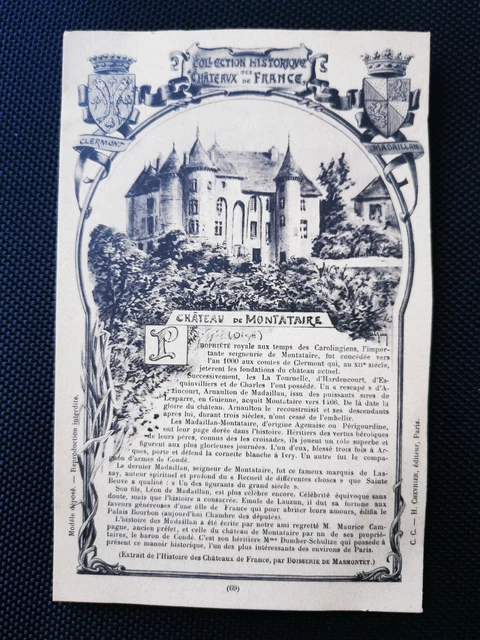 COLLECTION HISTORIQUE
DES
CHÂTEAUX DE FRANCE.
CLERMONT
MADAILLAN
CHÂTEAU DE MONTATAIRE
(Oise)
PROPRIÉTÉ royale aux temps des Carolingiens, l'impor-
tante seigneurie de Montataire, fut concédée vers
l'an 1000 aux comtes de Clermont qui, au XIIe siècle,
jetèrent les fondations du château actuel.
Successivement, les La Tournelle, d'Hardencourt, d'Es-
quinvilliers et de Charles l'ont possédé. Un « rescapé » d'A-
zincourt, Arnaulton de Madaillan, issu des puissants sires de
Lesparre, en Guienne, acquit Montataire vers 1466. De là date la
gloire du château. Arnaulton le reconstruisit et ses descendants
après lui, durant trois siècles, n'ont cessé de l'embellir.
Les Madaillan-Montataire, d'origine Agenaise ou Périgourdine,
ont leur page dorée dans l'histoire. Héritiers des vertus héroïques
de leurs pères, connus dès les croisades, ils jouent un rôle superbe et
figurent aux plus glorieuses journées. L'un d'eux, blessé trois fois à Ar-
ques, porte et défend la cornette blanche à Ivry. Un autre fut le compa-
gnon d'armes de Condé.
Le dernier Madaillan, seigneur de Montataire, fut ce fameux marquis de Las-
say, auteur spirituel et profond du « Recueil de différentes choses » que Sainte
Beuve a qualifié : « Un des figurants du grand siècle ».
Son fils, Léon de Madaillan, est plus célèbre encore. Célébrité équivoque sans
doute, mais que l'histoire a consacrée. Emule de Lauzun, il dut sa fortune aux
faveurs généreuses d'une fille de France qui pour abriter leurs amours, édifia le
Palais Bourbon (aujourd'hui Chambre des députés).
L'histoire des Madaillan a été écrite par notre ami regretté M. Maurice Cam-
pagne, ancien préfet, et celui du château de Montataire par un de ses proprié-
taires, le baron de Condé. C'est son héritière Mme Domber-Schultze qui possède à
présent ce manoir historique, l'un des plus intéressants des environs de Paris.
(Extrait de l'Histoire des Châteaux de France, par BOISSERIE DE MASMONTET.)
(69)
Modèle déposé. — Reproduction interdite.
C. C. — H. CHEVRIER, éditeur, Paris.